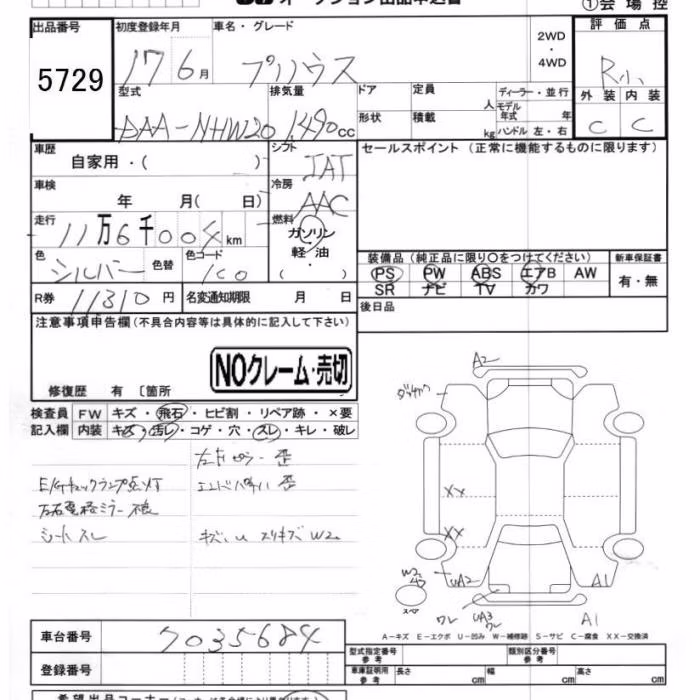 オークション出品申込書
①会場控
出品番号
5729
初度登録年月
17 6月
車名・グレード
プリウス
2WD
・
4WD
評価点
R小
外装 内装
C C
型式
DAA-NHW20
排気量
1,490cc
ドア
定員
人
形状
積載
kg
ディーラー・並行
モデル年式
年
ハンドル 左・右
車歴
自家用・( )
シフト
IAT
セールスポイント (正常に機能するものに限ります)
車検
年 月( 日)
冷房
AAC
走行
11万6千004km
燃料
ガソリン
軽油
( ・ )
色
シルバー
色替
色コード
1C0
装備品 (純正品に限り○をつけてください)
PS PW ABS エアB AW
SR ナビ TV カワ
新車保証書
有・無
R券 11310円
名変通知期限 月 日
後日品
注意事項申告欄 (不具合内容等は具体的に記入して下さい)
NOクレーム・売切
修復歴 有 〔箇所
検査員記入欄
FW キズ・飛石・ヒビ割・リペア跡・×要
内装 キズ・汚レ・コゲ・穴・スレ・キレ・破レ
左右ピラー歪
E/Gチェックランプ点灯
エンドパネル歪
左右電格ミラー不良
シートスレ
キズ、U スリキズ W2
A2
XX
XX
W2
UA2
A1
スペア
ワレ
UA3
ワレ
A1
A−キズ E−エクボ U−凹み W−補修跡 S−サビ C−腐食 XX−交換済
車台番号
7035684
登録番号
型式指定番号
参考
類別区分番号
参考
車庫証明用
参考
長さ cm 幅 cm 高さ cm
希望出品コーナー